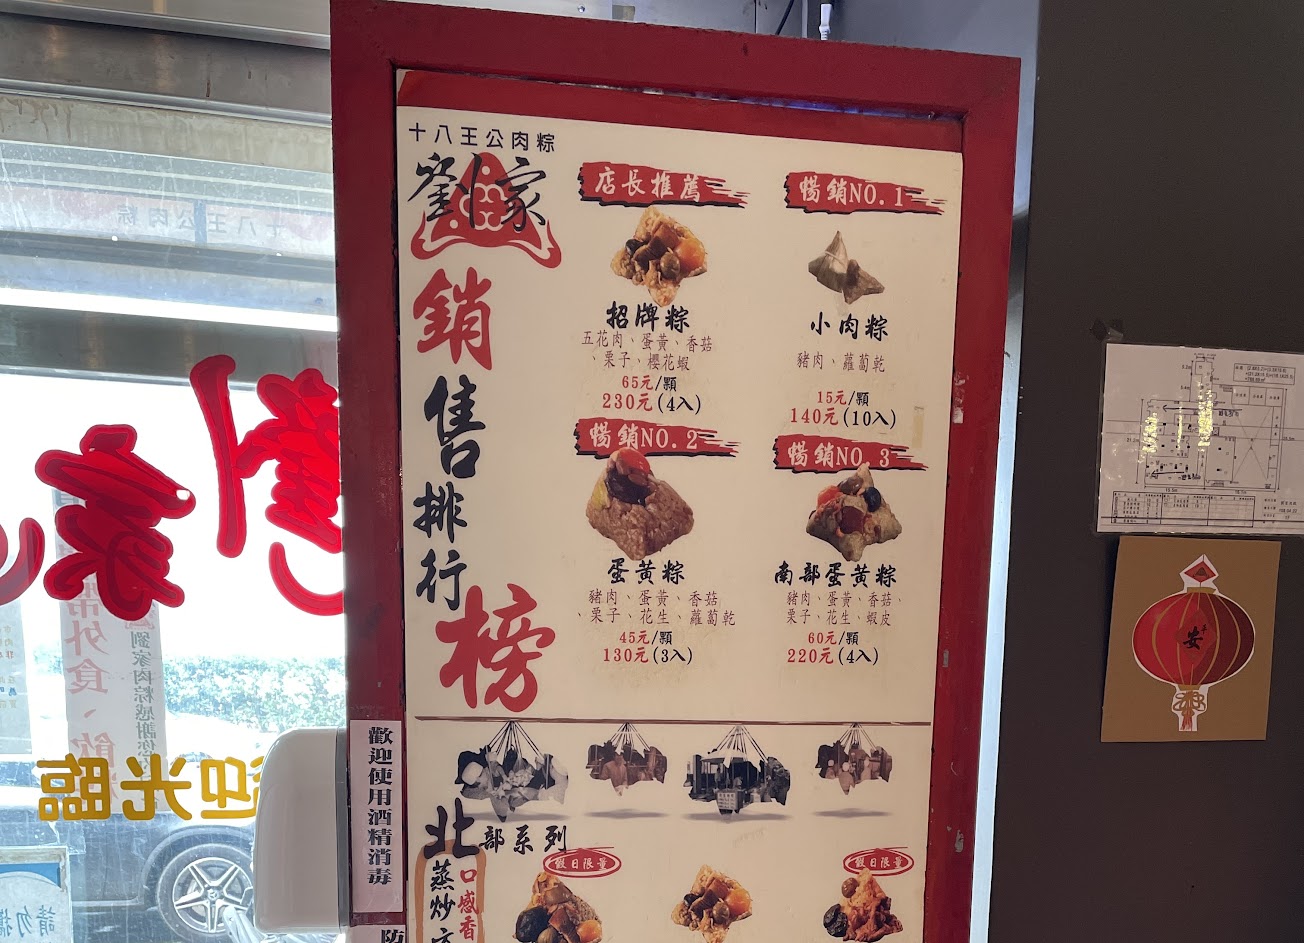 十八王公肉粽
劉家
銷售排行榜
店長推薦
招牌粽
五花肉、蛋黃、香菇
、栗子、櫻花蝦
65元/顆
230元(4入)
暢銷NO.1
小肉粽
豬肉、蘿蔔乾
15元/顆
140元(10入)
暢銷NO.2
蛋黃粽
豬肉、蛋黃、香菇
、栗子、花生、蘿蔔乾
45元/顆
130元(3入)
暢銷NO.3
南部蛋黃粽
豬肉、蛋黃、香菇、
栗子、花生、蝦皮
60元/顆
220元(4入)
北部系列
口感香
蒸炒
假日限量
假日限量
歡迎使用酒精消毒
防
劉家
迎光臨
十八王公肉粽
帶外食、飲
劉家肉粽感謝您
請勿攜
安